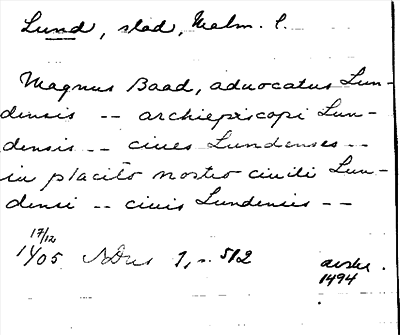 Lund, stad, Malm. l.
Magnus Baad, aduocatus Lun-
densis -- archiepiscopi Lun-
densis -- ciues Lundenses --
in placito nostro ciuili Lun-
densi -- ciuis Lundensis --
17/12
1405 1, s. 512
avskr.
1494